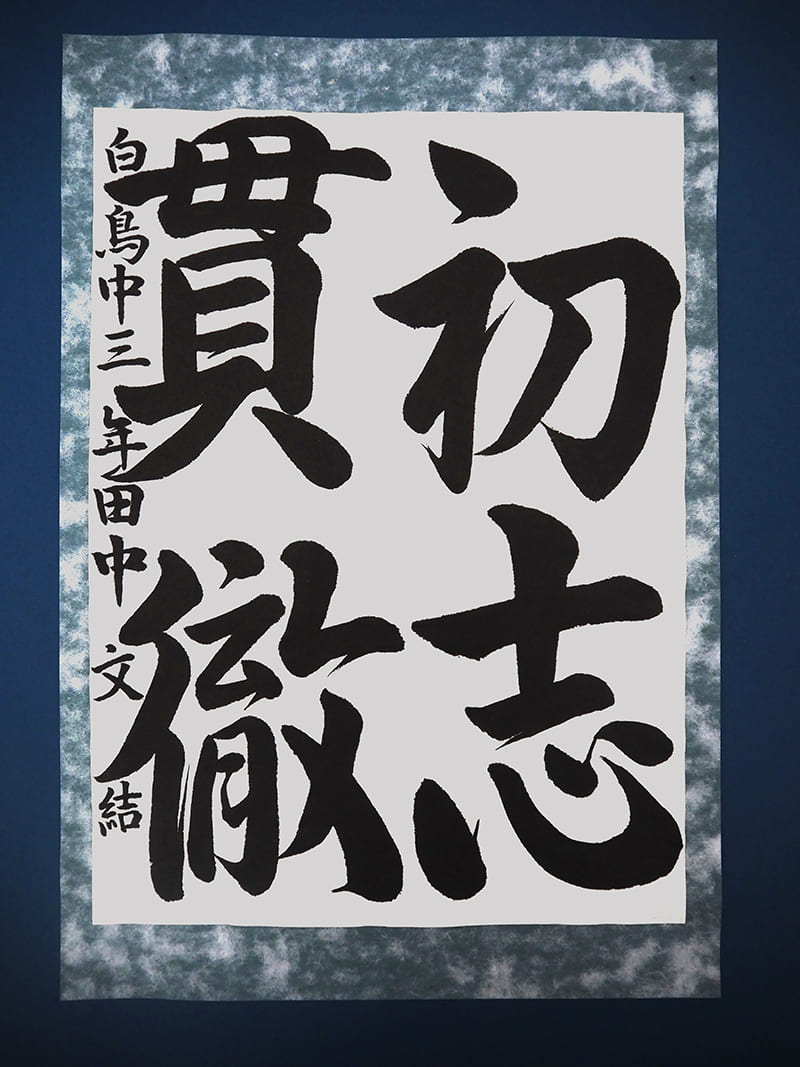 初志
貫徹
白鳥中三年田中文結